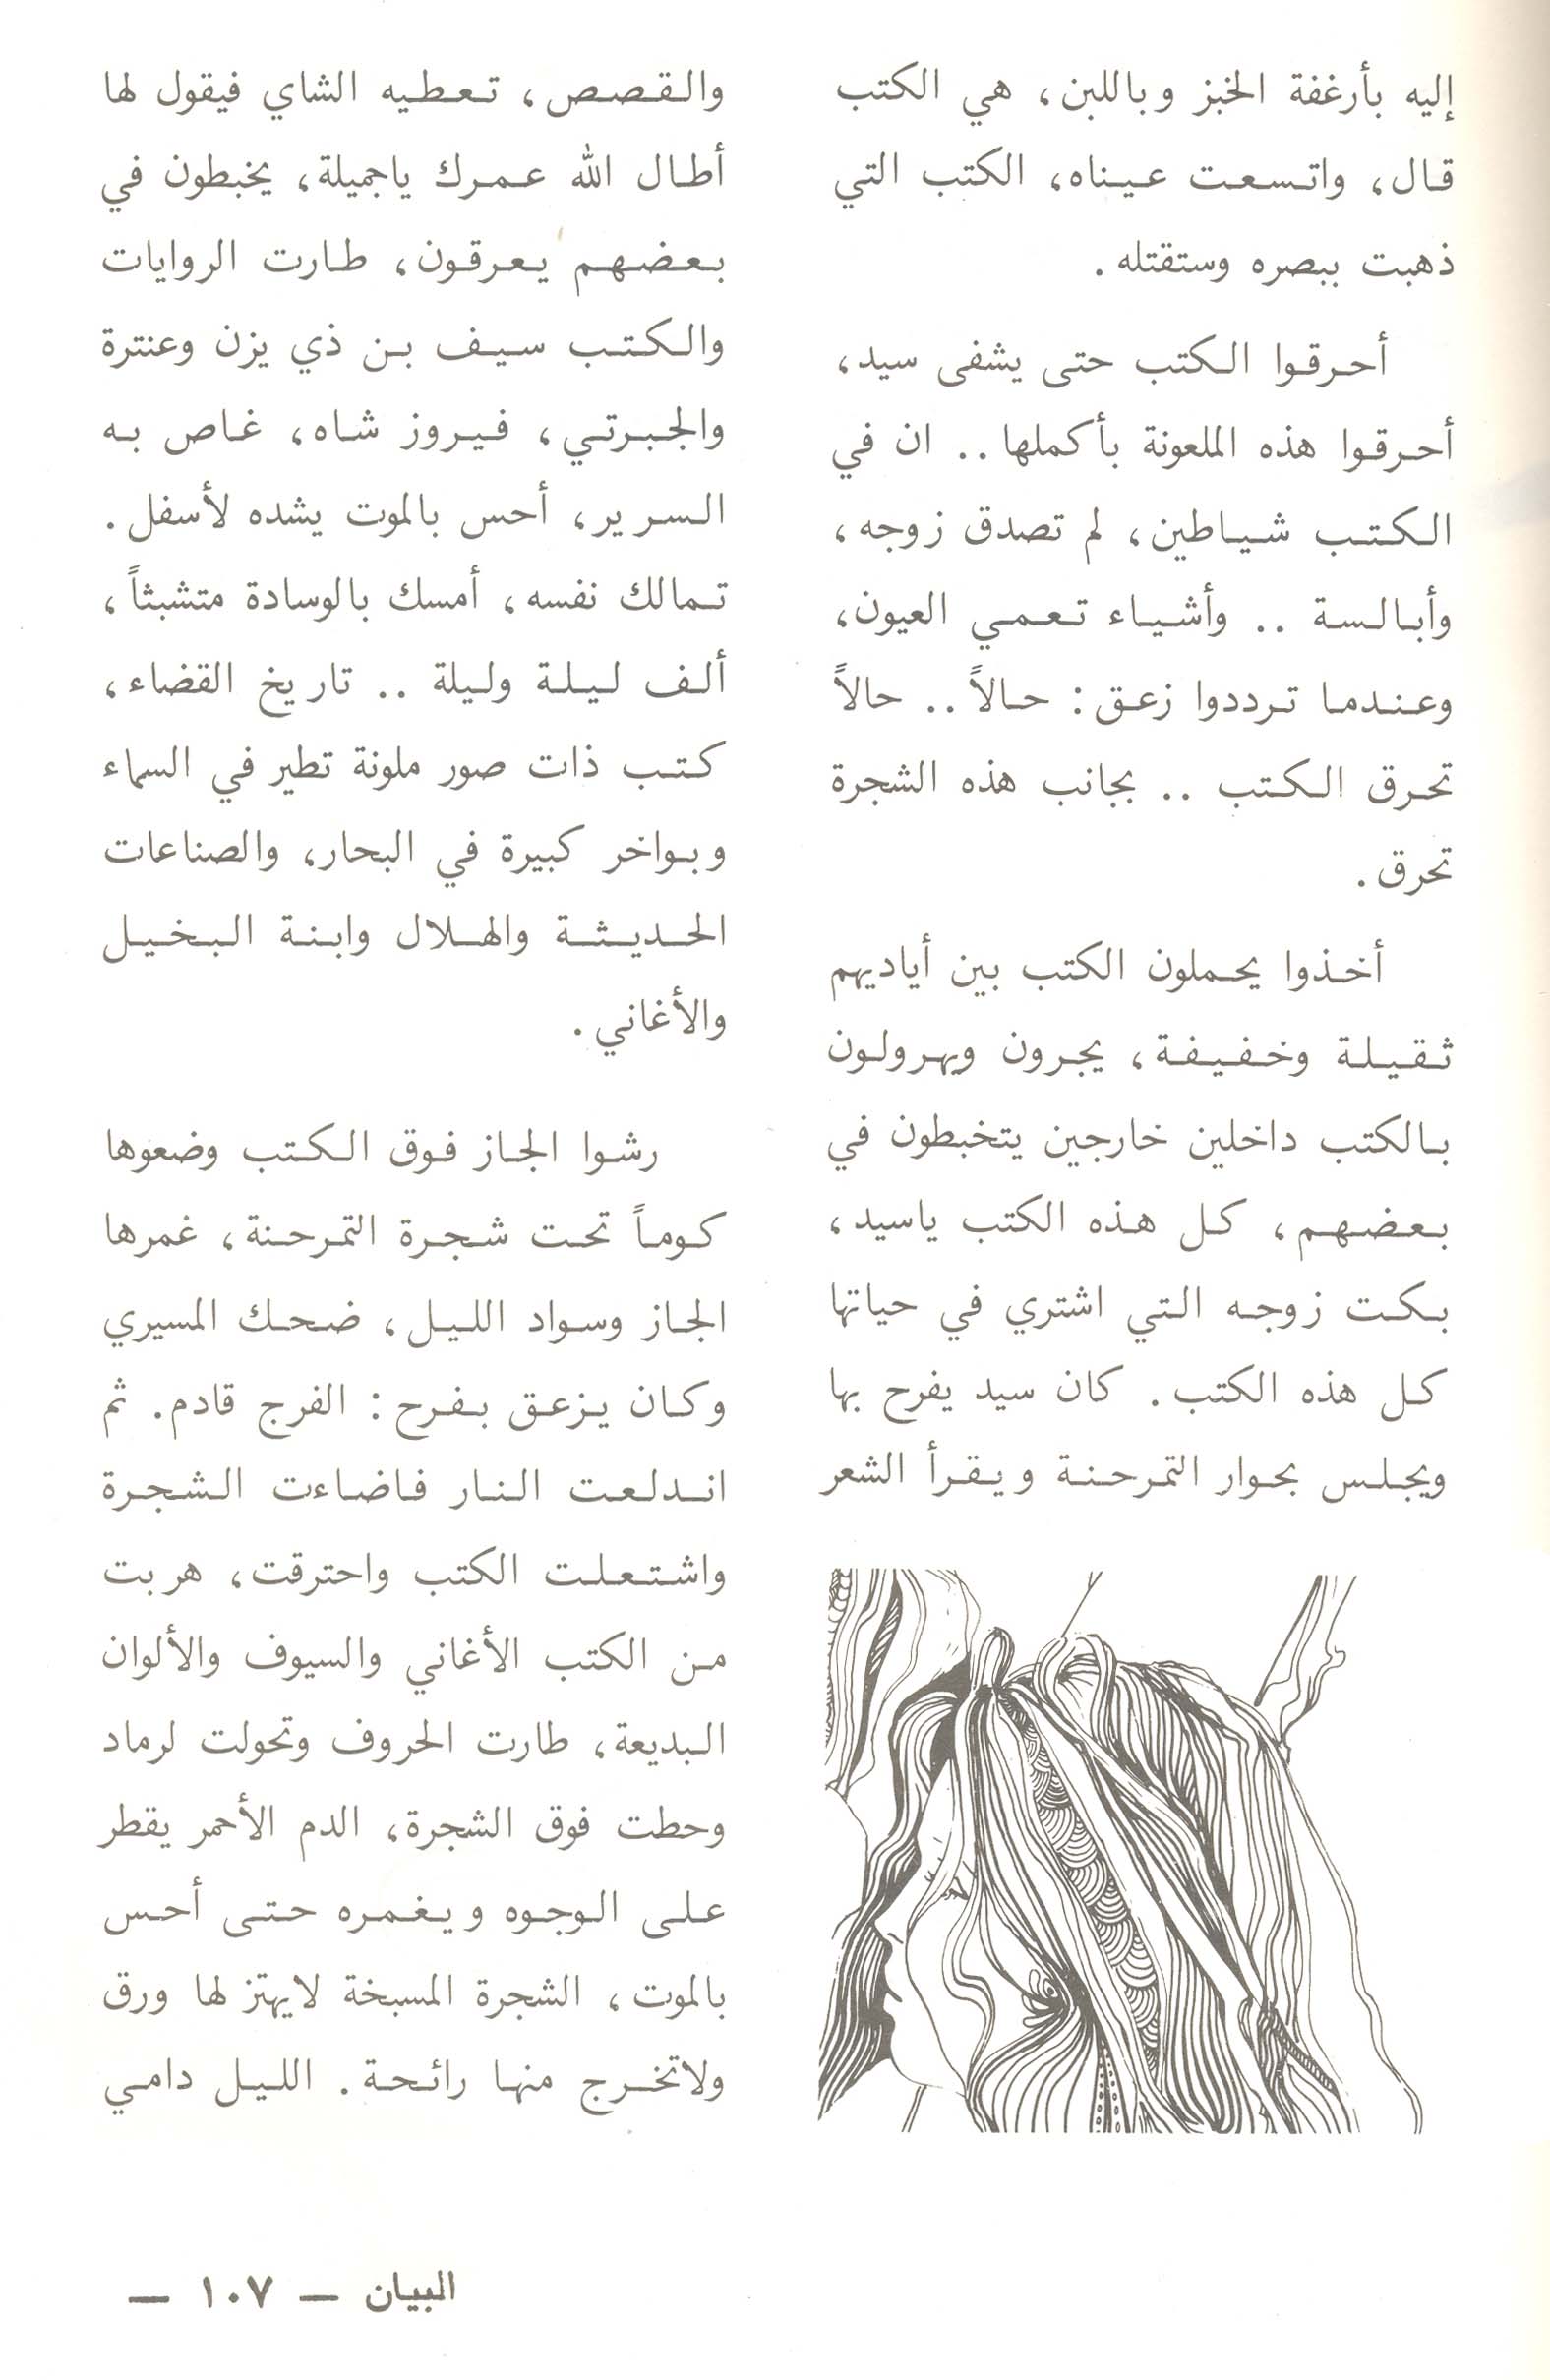 إليه بأرغفة الخبز وباللبن، هي الكتب
قال، واتسعت عيناه، الكتب التي
ذهبت ببصره وستقتله.
أحرقوا الكتب حتى يشفى سيد،
أحرقوا هذه الملعونة بأكملها.. ان في
الكتب شياطين، لم تصدق زوجه،
وأبالسة .. وأشياء تعمي العيون،
وعندما ترددوا زعق: حالاً.. حالاً
تحرق الكتب .. بجانب هذه الشجرة
تحرق.
أخذوا يحملون الكتب بين أياديهم
ثقيلة وخفيفة، يجرون ويهرولون
بالكتب داخلين خارجين يتخبطون في
بعضهم، كل هذه الكتب ياسيد،
بكت زوجه التي اشتري في حياتها
كل هذه الكتب. كان سيد يفرح بها
ويجلس بجوار التمرحنة ويقرأ الشعر
والقصص، تعطيه الشاي فيقول لها
أطال الله عمرك ياجميلة، يخبطون في
بعضهم يعرقون، طارت الروايات
والكتب سيف بن ذي يزن وعنترة
والجبرتي، فيروز شاه، غاص به
السرير، أحس بالموت يشده لأسفل.
تمالك نفسه، أمسك بالوسادة متشبثاً،
ألف ليلة وليلة .. تاريخ القضاء،
كتب ذات صور ملونة تطير في السماء
وبواخر كبيرة في البحار، والصناعات
الحديثة والهلال وابنة البخيل
والأغاني.
رشوا الجاز فوق الكتب وضعوها
كوماً تحت شجرة التمرحنة، غمرها
الجاز وسواد الليل، ضحك المسيري
وكان يزعق بفرح: الفرج قادم. ثم
اندلعت النار فاضاءت الشجرة
واشتعلت الكتب واحترقت، هربت
من الكتب الأغاني والسيوف والألوان
البديعة، طارت الحروف وتحولت لرماد
وحطت فوق الشجرة، الدم الأحمر يقطر
على الوجوه ويغمره حتى أحس
بالموت، الشجرة المسبخة لايهتز لها ورق
ولاتخرج منها رائحة. الليل دامي
البيان — ١٠٧ —